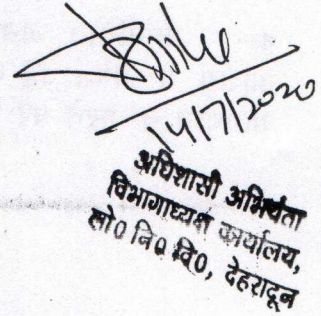 14/7/2020
अधिशासी अभियंता
विभागाध्यक्ष कार्यालय,
लो० नि० वि०, देहरादून